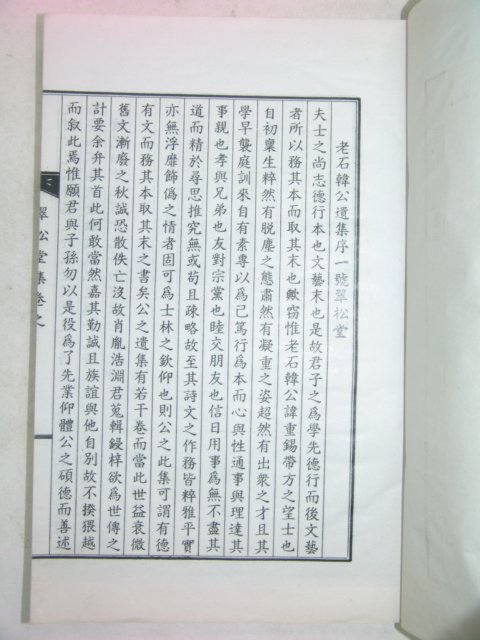 老石韓公遺集序 一號翠松堂
夫士之尚志德行本也文藝末也是故君子之爲學先德行而後文藝
者所以務其本而取其末也歟窃惟老石韓公諱重錫帶方之望士也
自初稟生粹然有脫塵之態肅然有凝重之姿超然有出衆之才且其
學早襲庭訓來自有素專以爲己篤行爲本而心與性通事與理達其
事親也孝與兄弟也友對宗黨也睦交朋友也信日用事爲無不盡其
道而精於尋思推究無或苟且疎略故至其詩文之作務皆粹雅平實
亦無浮靡飾僞之情者固可爲士林之欽仰也則公之此集可謂有德
有文而務其本取其末之書矣公之遺集有若干卷而當此世益衰微
舊文漸廢之秋誠恐散佚亡沒故肖胤浩淵君蒐輯鋟梓欲爲世傳之
計要余弁其首此何敢當然嘉其勤誠且族誼與他自別故不揆猥越
而叙此焉惟願君與子孫勿以是役爲了先業仰體公之碩德而善述
翠松堂集卷之